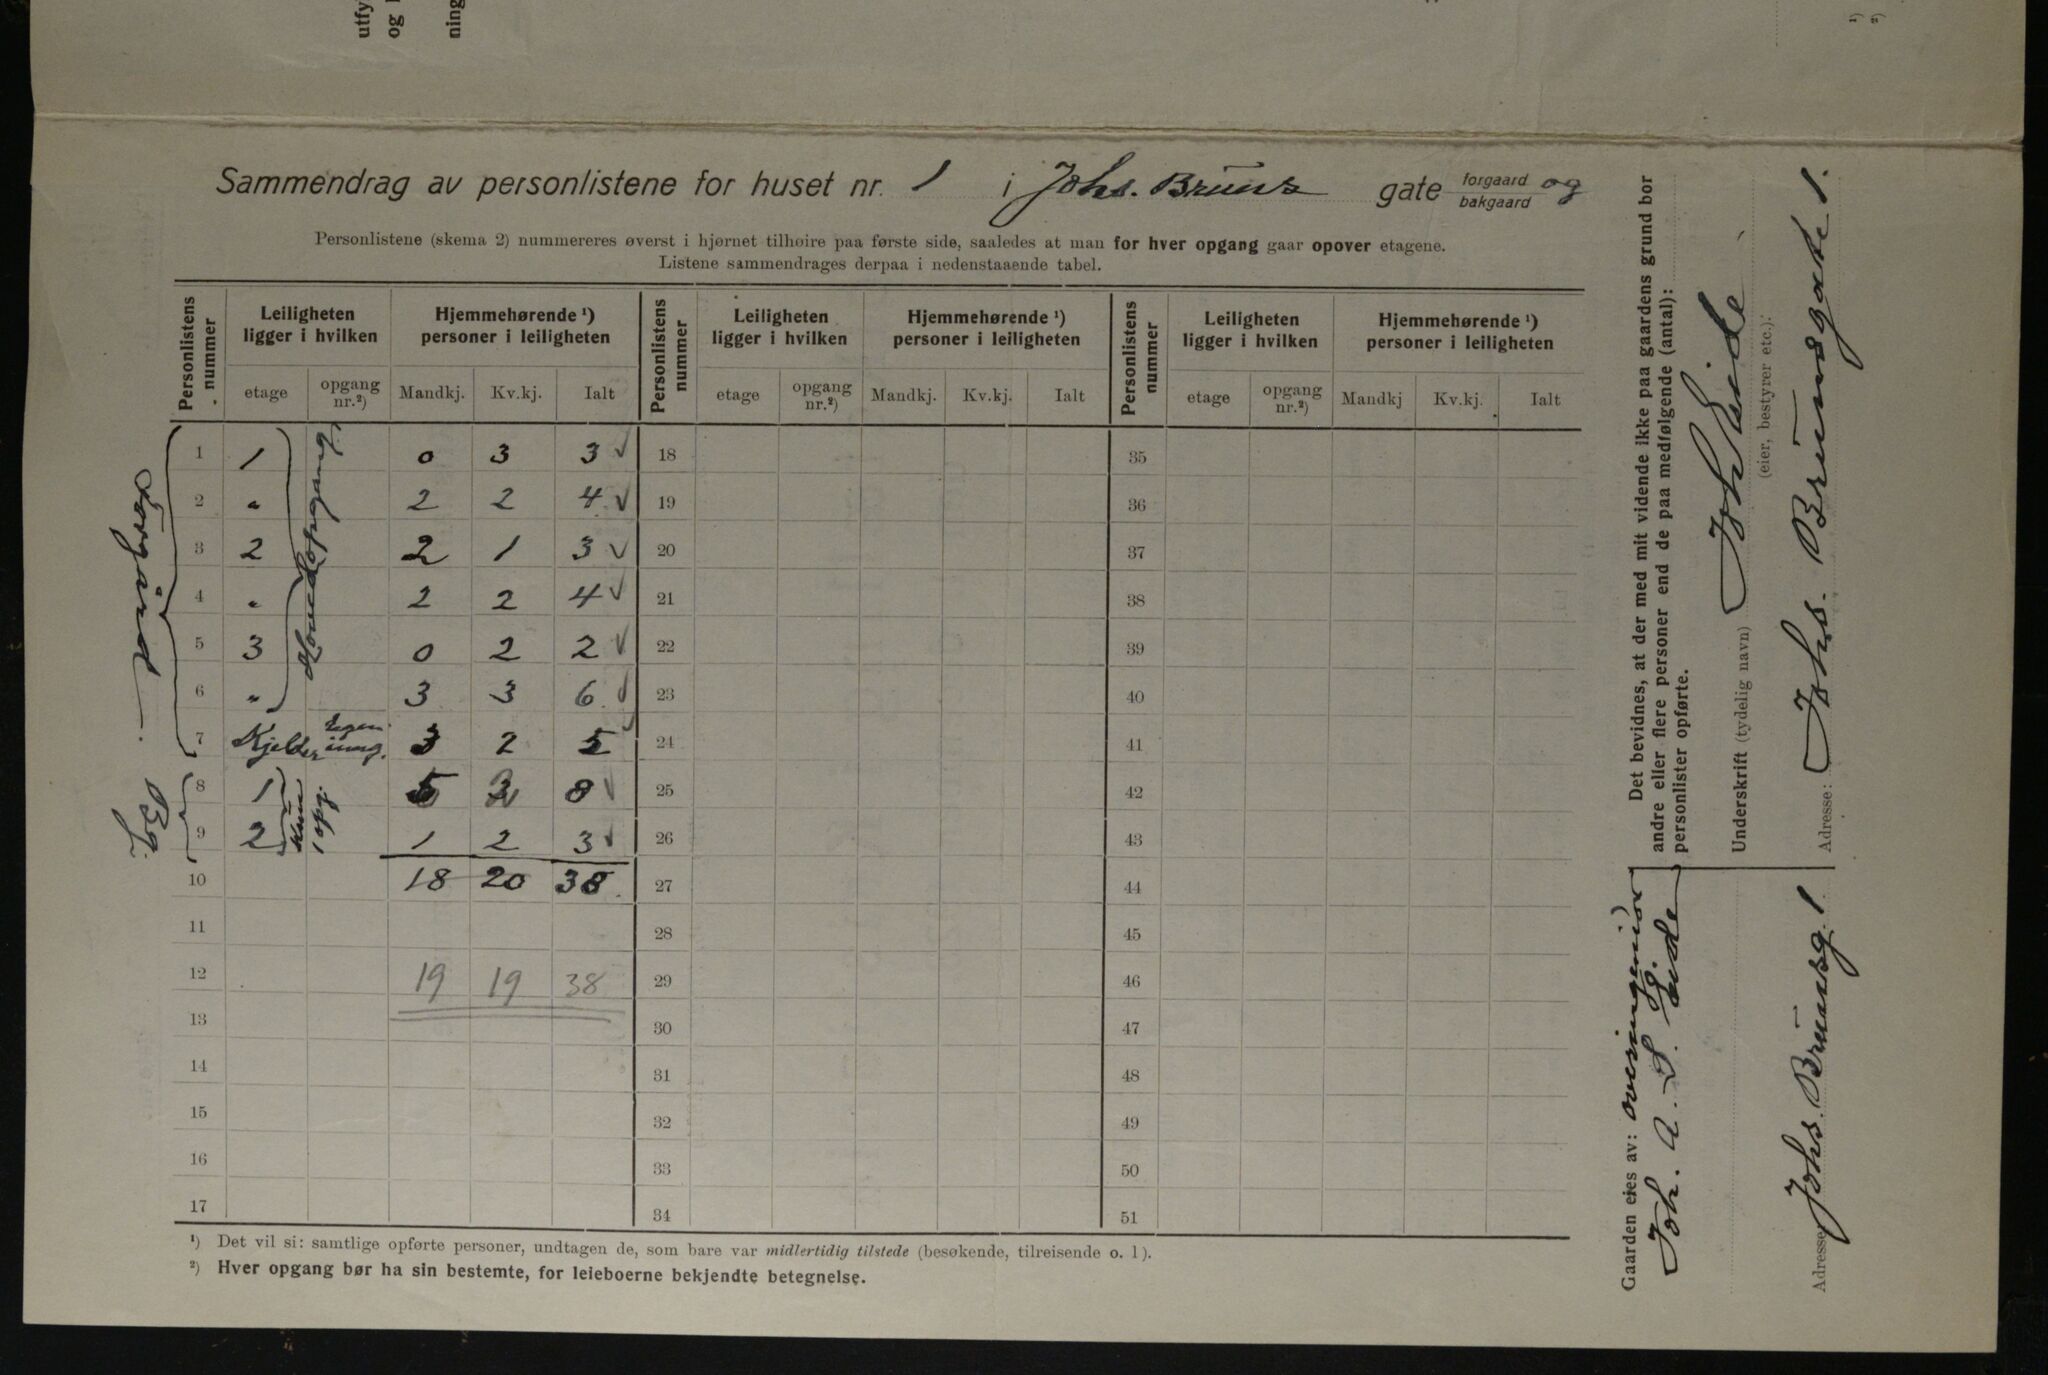 utfy
og
ning
1)
2)
Sammendrag av personlistene for huset nr. 1 i Johs. Bruns gate forgaard og bakgaard
Personlistene (skema 2) nummereres øverst i hjørnet tilhøire paa første side, saaledes at man for hver opgang gaar opover etagene.
Listene sammendrages derpaa i nedenstaaende tabel.
Personlistens nummer | Leiligheten ligger i hvilken | Hjemmehørende ¹) personer i leiligheten | Personlistens nummer | Leiligheten ligger i hvilken | Hjemmehørende ¹) personer i leiligheten | Personlistens nummer | Leiligheten ligger i hvilken | Hjemmehørende ¹) personer i leiligheten
etage | opgang nr.²) | Mandkj. | Kv.kj. | Ialt | etage | opgang nr.²) | Mandkj. | Kv.kj. | Ialt | etage | opgang nr.²) | Mandkj | Kv.kj. | Ialt
Forgård
Hovedopgang
1 1 0 3 3 18 35
2 " 2 2 4 19 36
3 2 2 1 3 20 37
4 " 2 2 4 21 38
5 3 0 2 2 22 39
6 " 3 3 6 23 40
7 Kjelder egen inng. 3 2 5 24 41
Bg.
kun 1 opg.
8 1 5 3 8 25 42
9 2 1 2 3 26 43
10 18 20 38 27 44
11 28 45
12 19 19 38 29 46
13 30 47
14 31 48
15 32 49
16 33 50
17 34 51
¹) Det vil si: samtlige opførte personer, undtagen de, som bare var midlertidig tilstede (besøkende, tilreisende o. l).
²) Hver opgang bør ha sin bestemte, for leieboerne bekjendte betegnelse.
Det bevidnes, at der med mit vidende ikke paa gaardens grund bor
andre eller flere personer end de paa medfølgende (antal):
personlister opførte.
Joh Eide
Underskrift (tydelig navn)
(eier, bestyrer etc.):
Adresse: Johs. Brunsgate 1.
Gaarden eies av: overingeniør
Joh. A. S. Eide
Adresse: Johs. Brunsg. 1